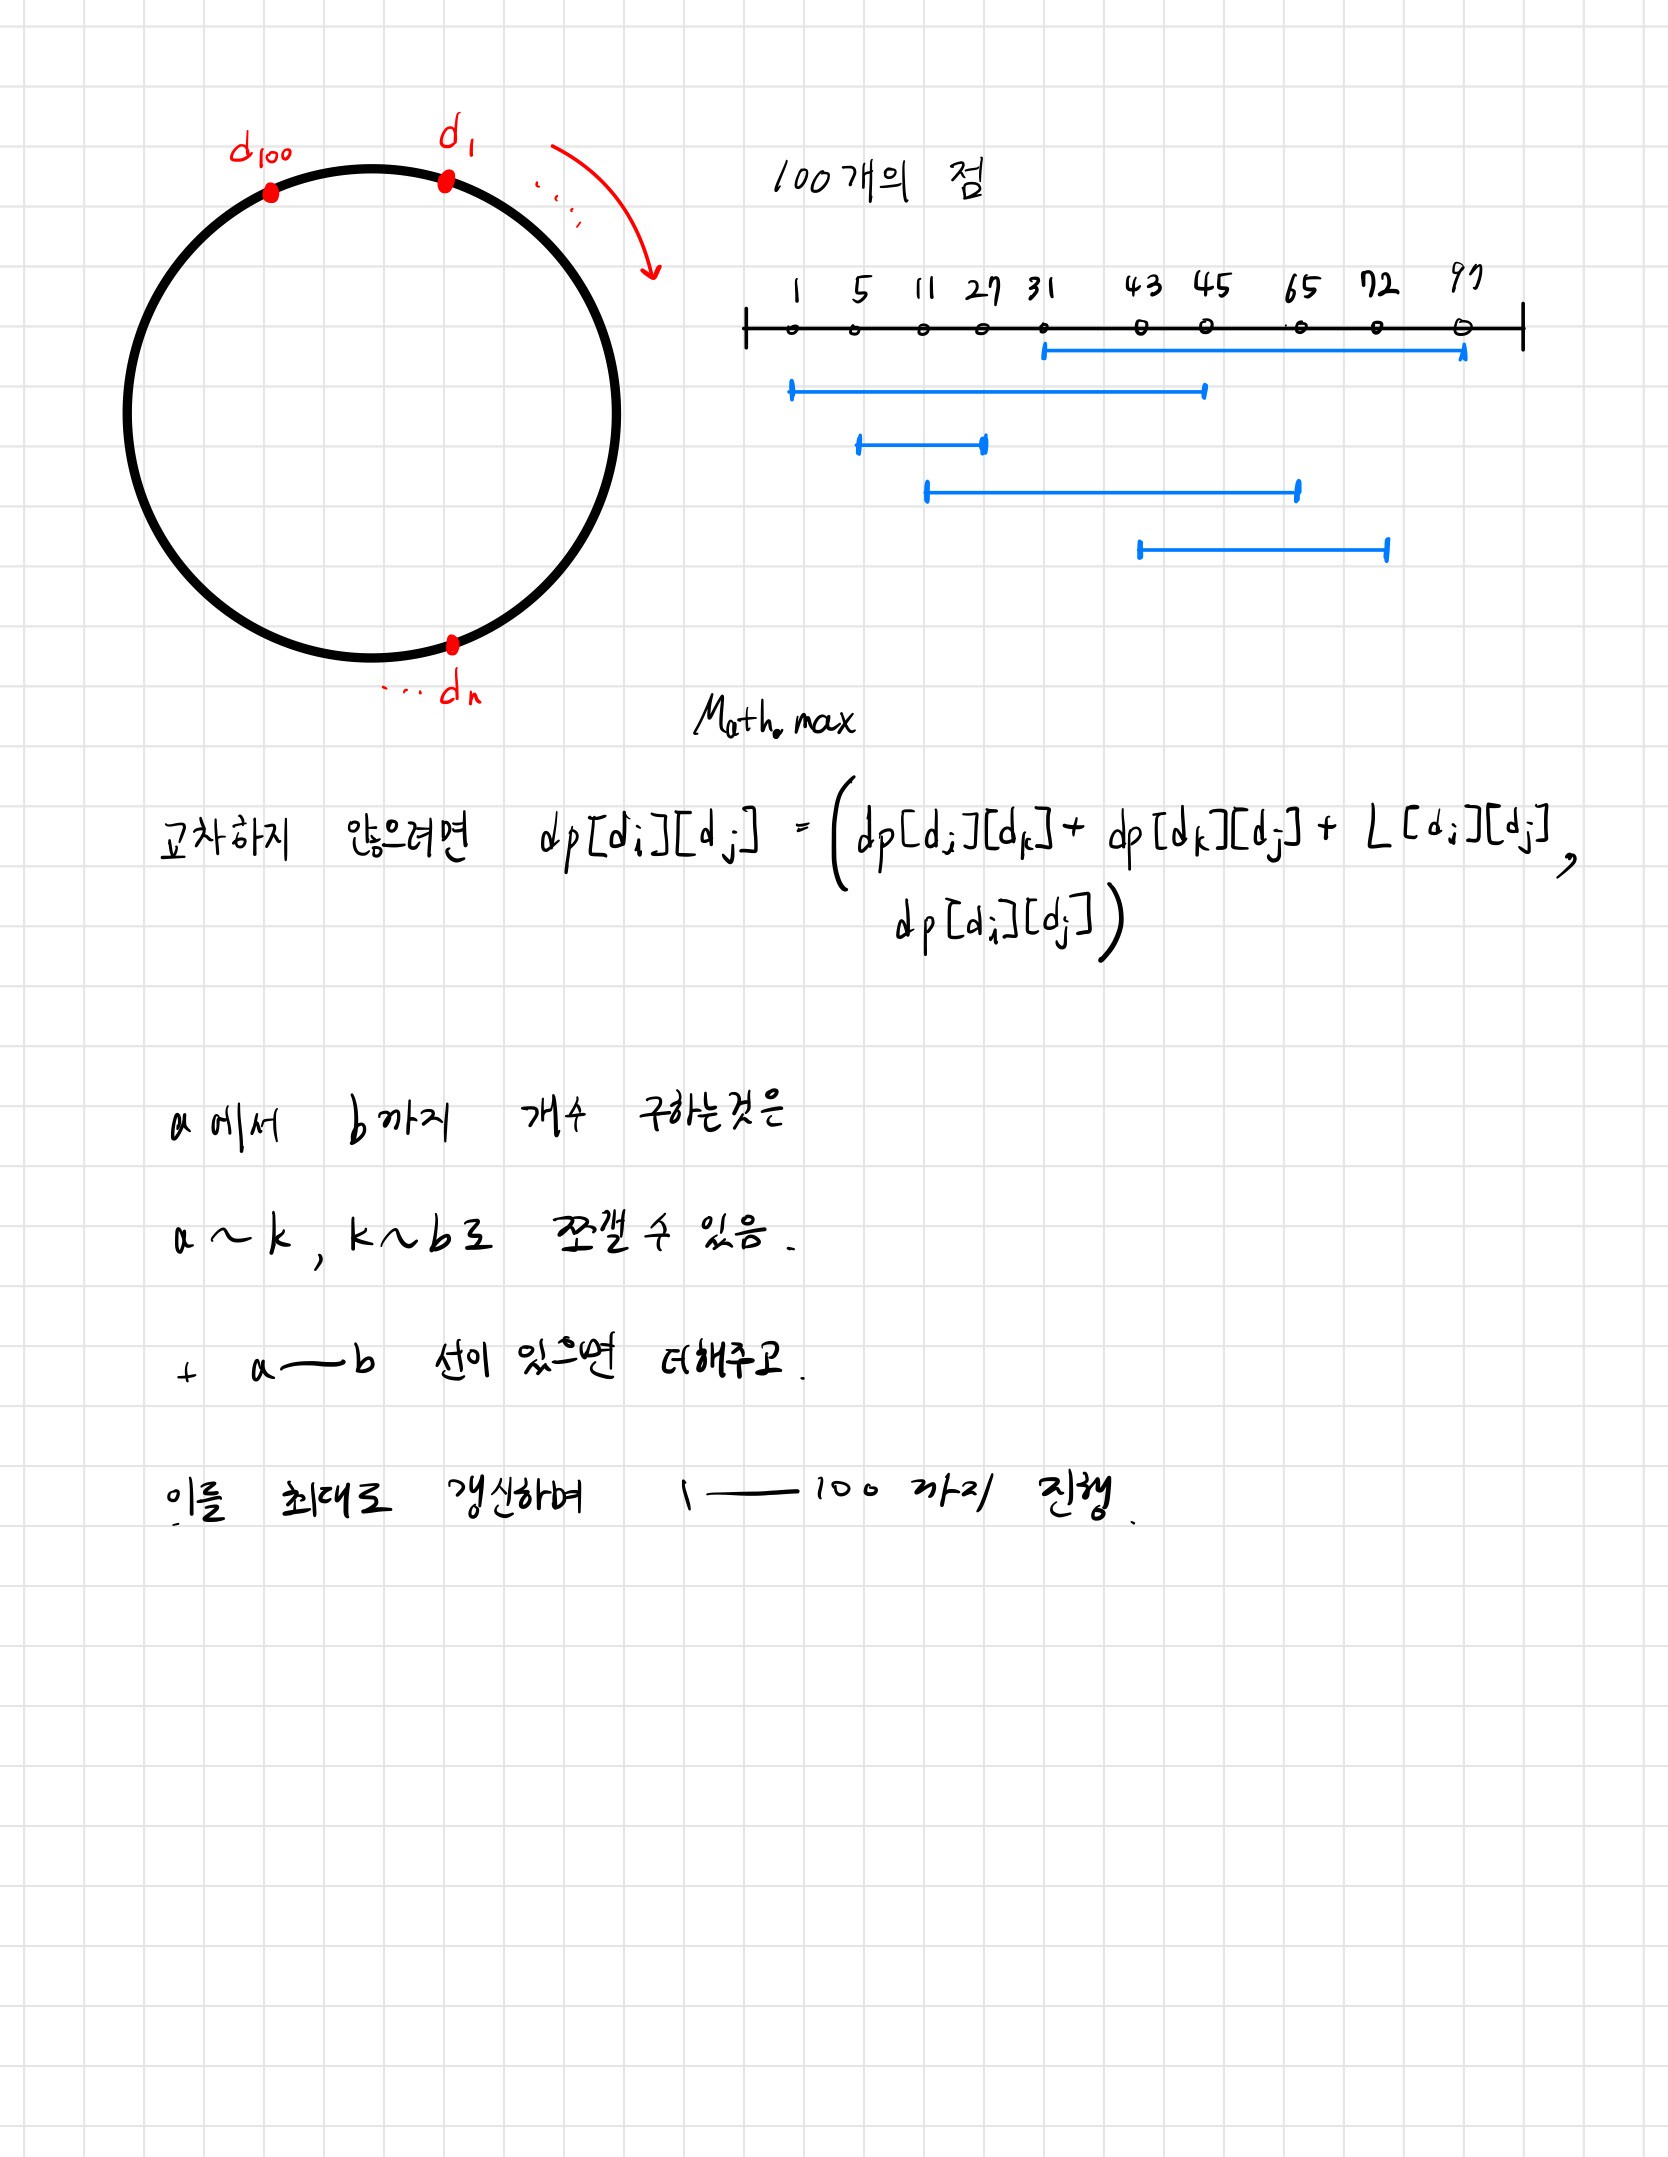 d₁₀₀
d₁
.....
100개의 점
1 5 11 27 31 43 45 65 72 97
... dₙ
Math.max
교차하지 않으려면 dp[di][dj] = (dp[di][dk] + dp[dk][dj] + L[di][dj],
dp[di][dj])
a에서 b까지 개수 구하는것은
a ~ k, k ~ b로 쪼갤 수 있음.
+ a — b 선이 있으면 더해주고.
이를 최대로 갱신하며 1 — 100 까지 진행.